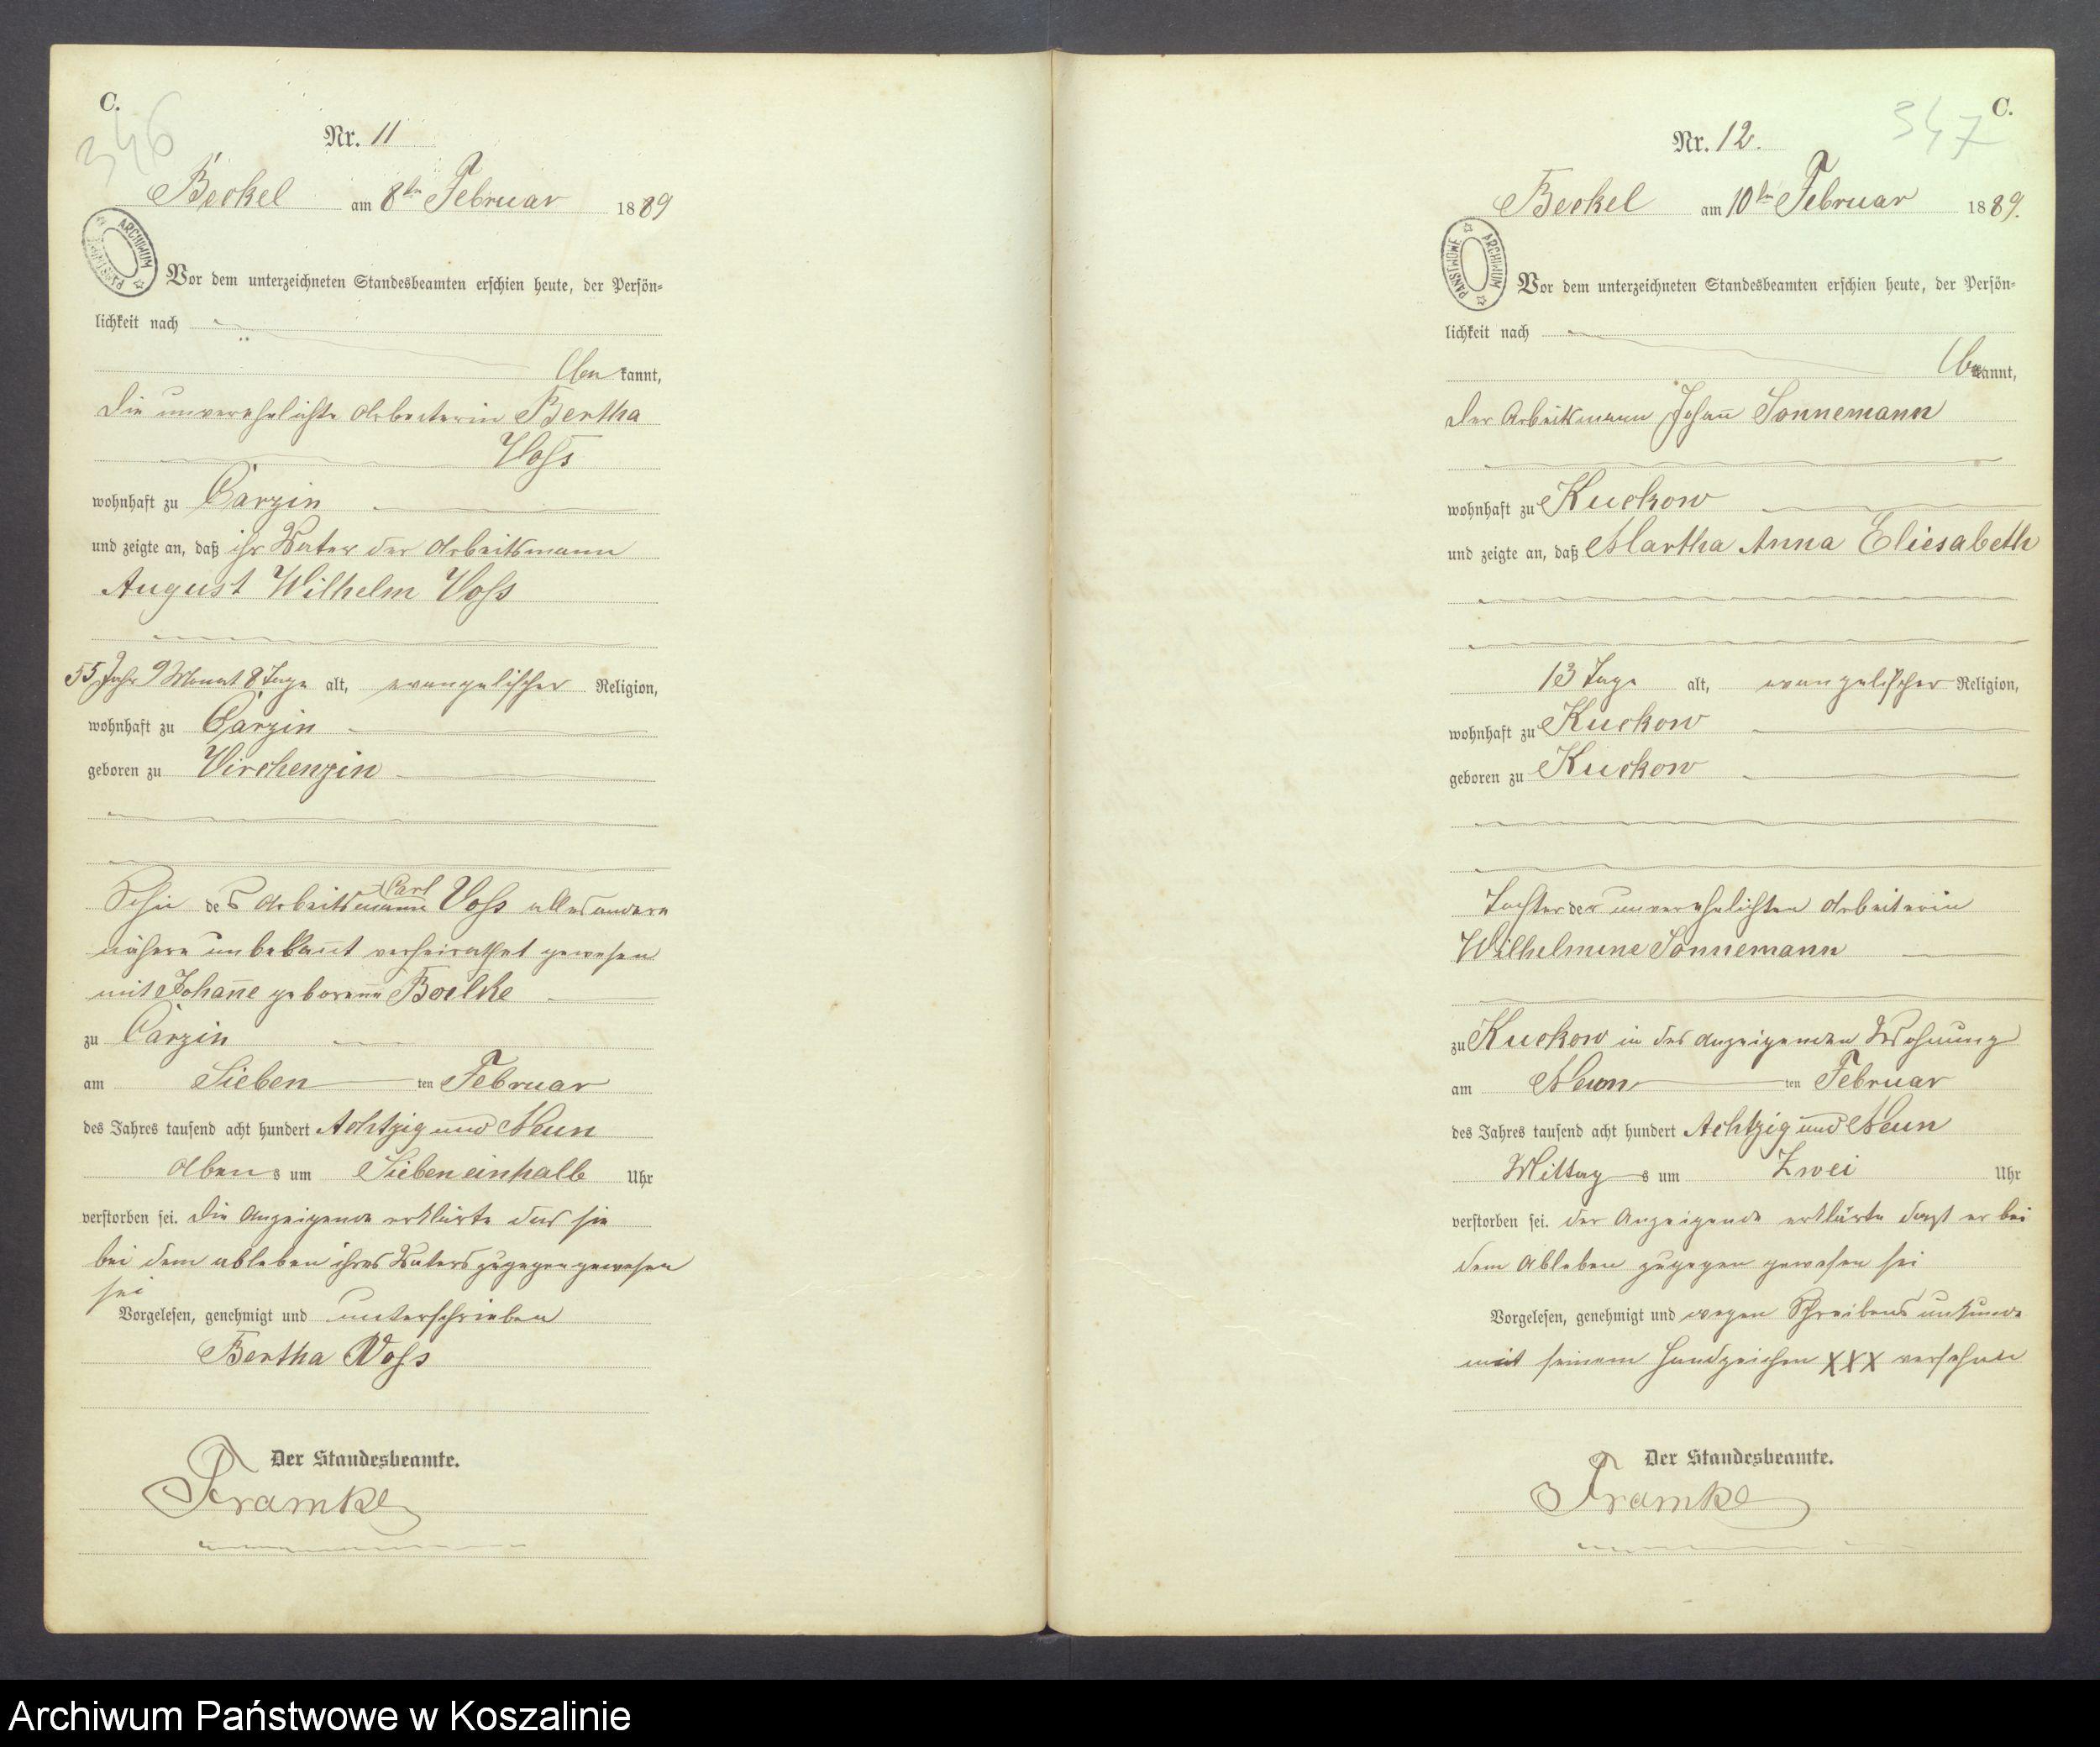 C.
346
Nr. 11
Beckel am 8ten Februar 1889
ARCHIWUM PAŃSTWOWE
Vor dem unterzeichneten Standesbeamten erschien heute, der Persön-
lichkeit nach
be kannt,
die unverehelichte Arbeiterin Bertha
Voss
wohnhaft zu Carzin
und zeigte an, daß ihr Vater der Arbeitsmann
August Wilhelm Voss
55 Jahr 9 Monat 8 Tage alt, evangelischer Religion,
wohnhaft zu Carzin
geboren zu Virchenzin
Sohn des Arbeitsmann Carl Voss alles andere
nähere unbekannt verheirathet gewesen
mit Johanne geborene Boelke
zu Carzin
am Sieben ten Februar
des Jahres tausend acht hundert Achtzig und Neun
Abends um Siebeneinhalb Uhr
verstorben sei. Die Anzeigende erklärte das sie
bei dem ableben ihres Vaters zugegen gewesen
sei
Vorgelesen, genehmigt und unterschrieben
Bertha Voss
Der Standesbeamte.
Framke
C.
347
Nr. 12.
Beckel am 10ten Februar 1889.
PAŃSTWOWE ARCHIWUM
Vor dem unterzeichneten Standesbeamten erschien heute, der Persön-
lichkeit nach
bekannt,
der Arbeitsmann Johann Sonnemann
wohnhaft zu Kuckow
und zeigte an, daß Martha Anna Eliesabeth
13 Tage alt, evangelischer Religion,
wohnhaft zu Kuckow
geboren zu Kuckow
Tochter der unverehelichten Arbeiterin
Wilhelmine Sonnemann
zu Kuckow in des Anzeigenden Wohnung
am Neun ten Februar
des Jahres tausend acht hundert Achtzig und Neun
Mittags um Zwei Uhr
verstorben sei. Der Anzeigende erklärte dass er bei
dem Ableben zugegen gewesen sei
Vorgelesen, genehmigt und wegen Schreibens unkunde
mit seinem Handzeichen XXX versehen
Der Standesbeamte.
Framke
Archiwum Państwowe w Koszalinie